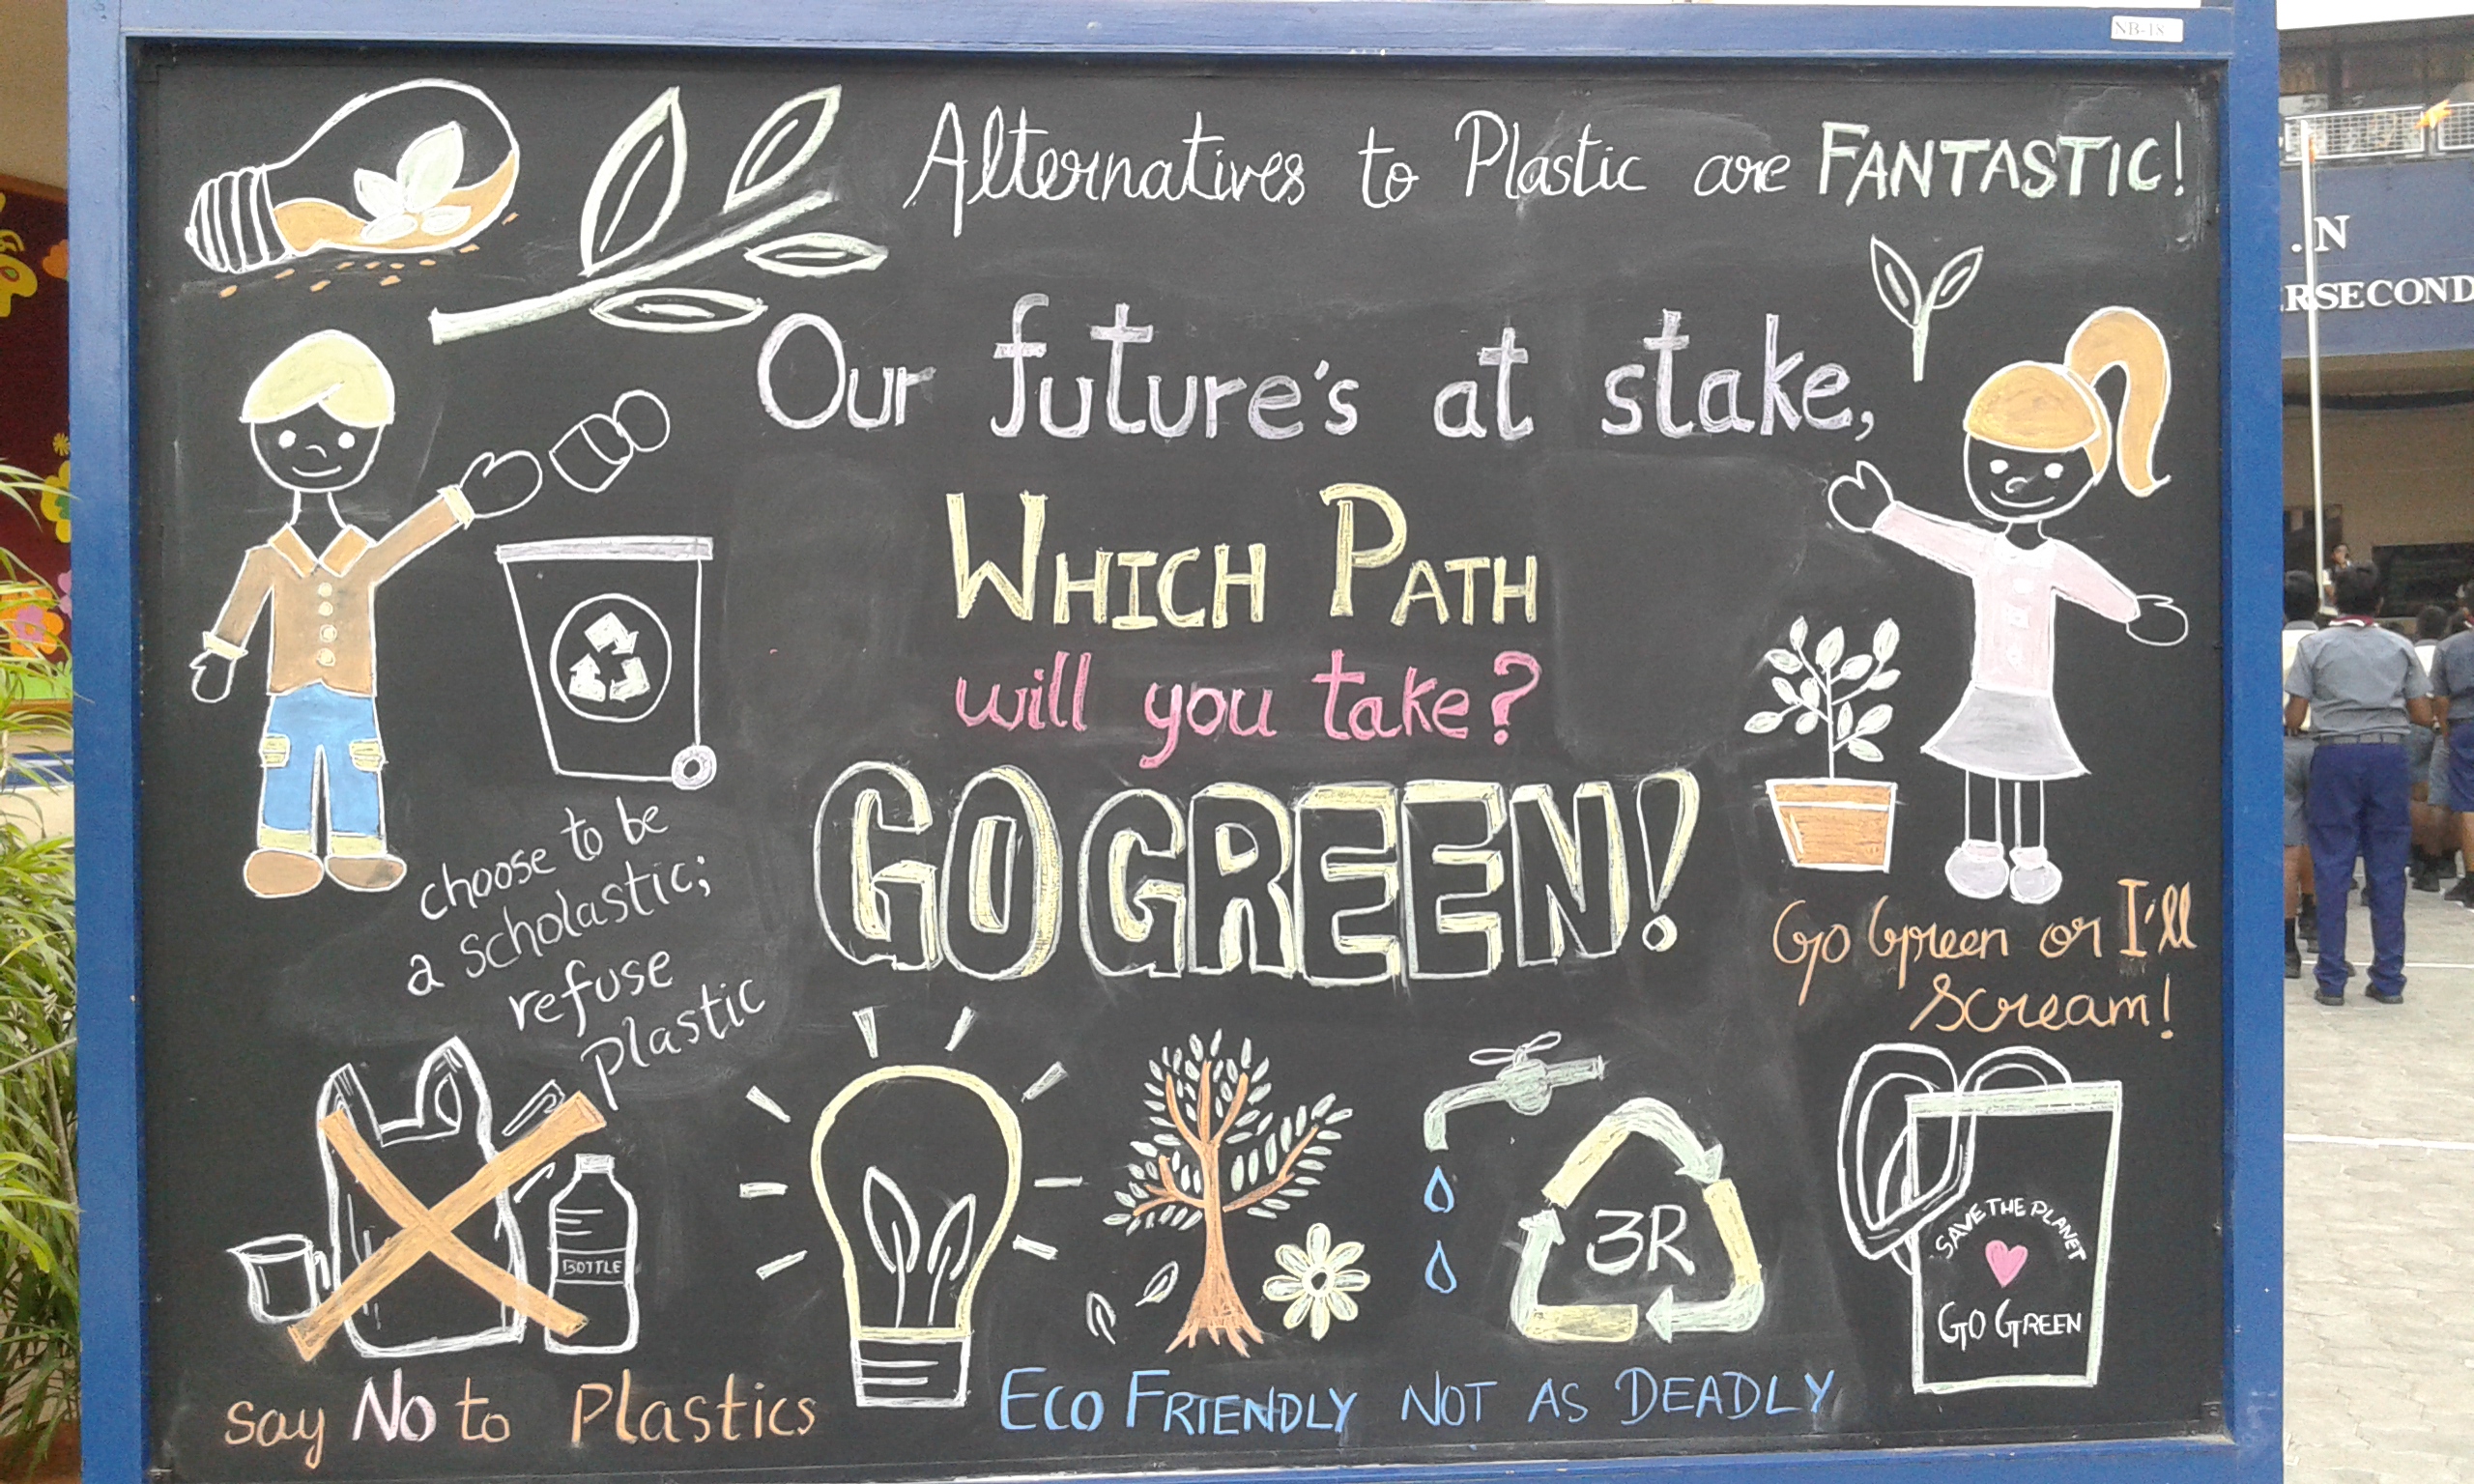 NB-18
Alternatives to Plastic are FANTASTIC!
Our future's at stake,
WHICH PATH
will you take?
GO GREEN!
choose to be
a scholastic;
refuse
Plastic
Go Green or I'll
Scream!
BOTTLE
3R
SAVE THE PLANET
GO GREEN
say No to Plastics
ECO FRIENDLY NOT AS DEADLY
.N
RSECOND